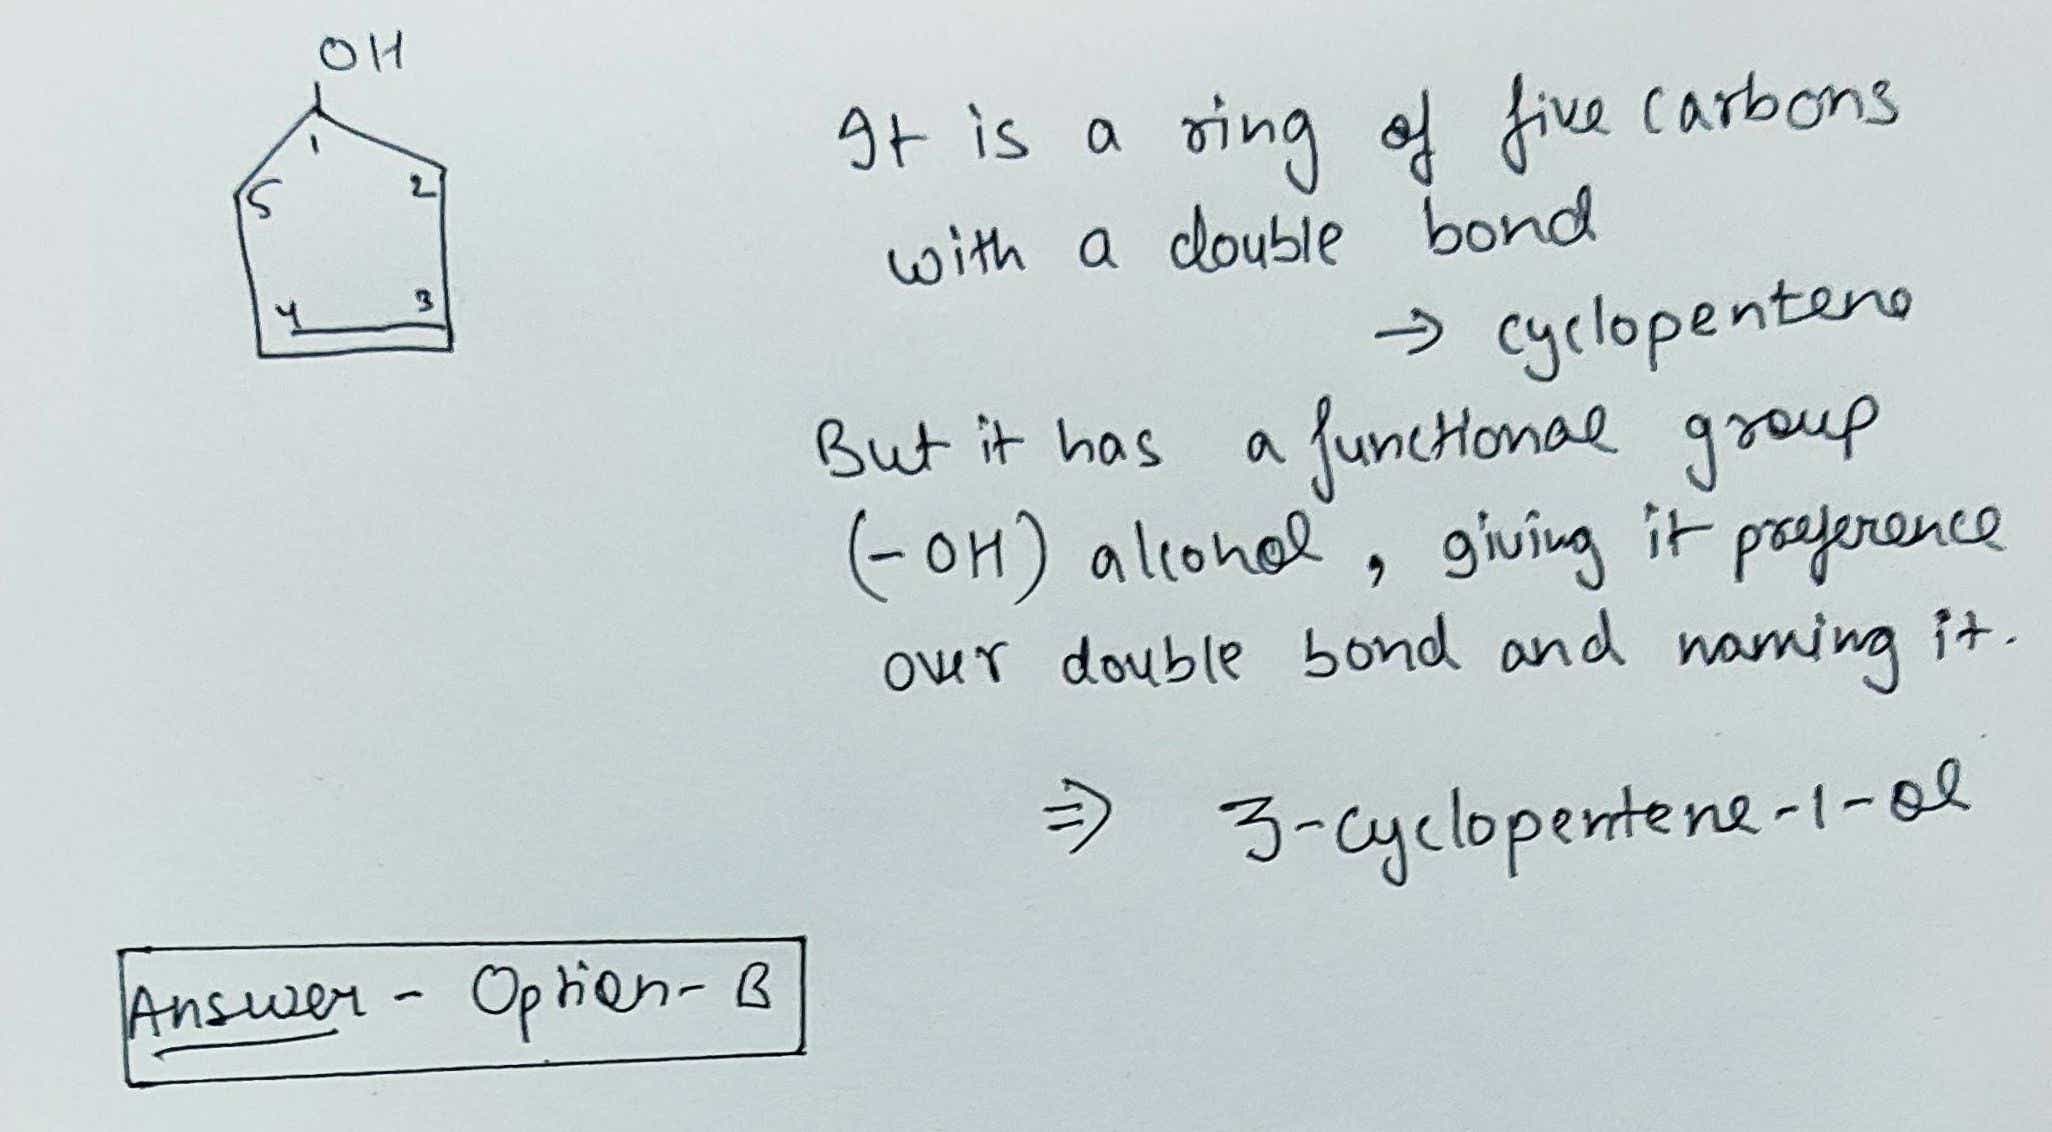 OH
1
5
2
4
3
It is a ring of five carbons
with a double bond
→ cyclopentene
But it has a functional group
(-OH) alcohol, giving it preference
over double bond and naming it.
⇒ 3-cyclopentene-1-ol
Answer - Option-B